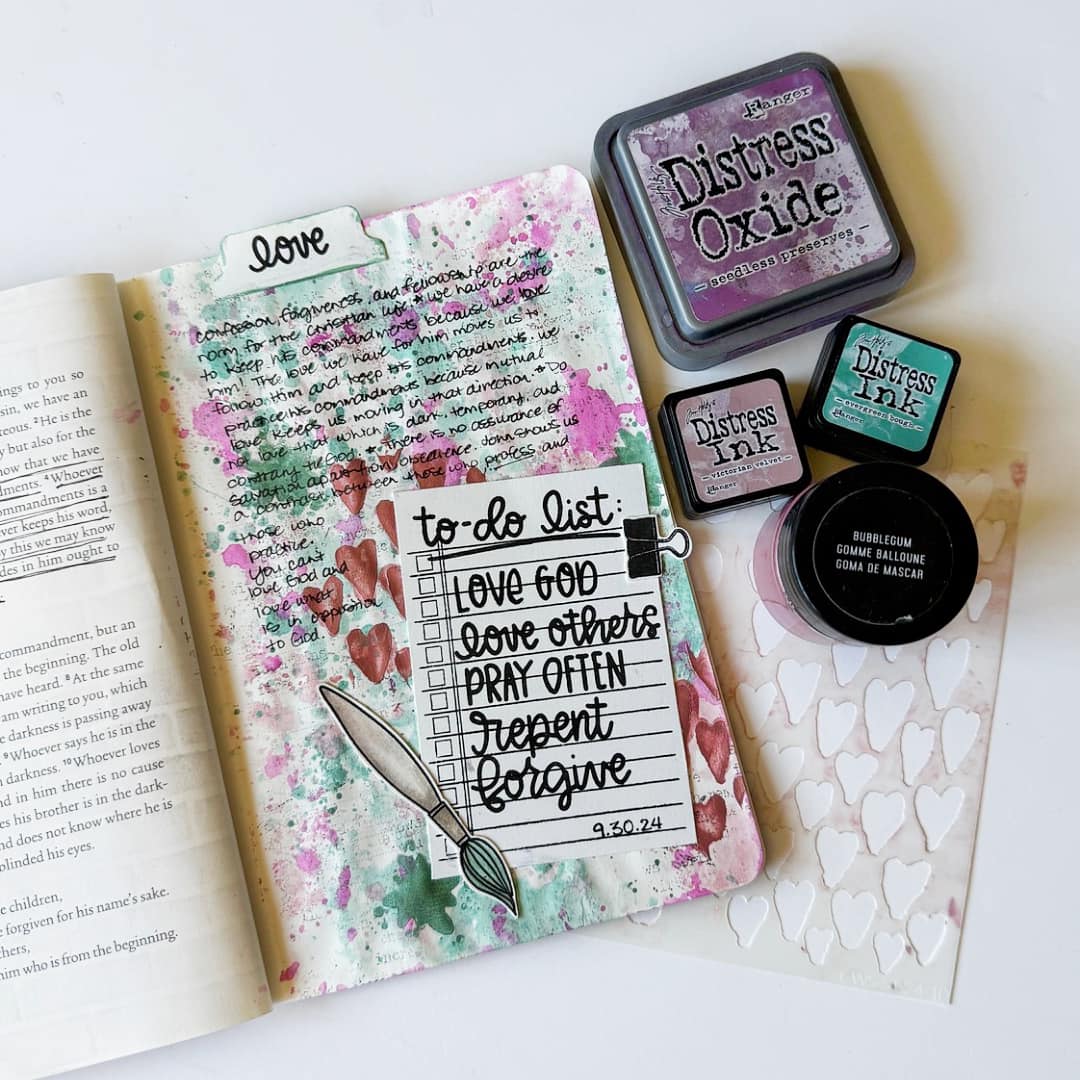 ings to you so
sin, we have an
eous. ²He is the
y but also for the
now that we have
dments. ⁴Whoever
ommandments is a
ever keeps his word,
y this we may know
des in him ought to
commandment, but an
the beginning. The old
have heard. ⁸At the same
am writing to you, which
e darkness is passing away
⁹Whoever says he is in the
darkness. ¹⁰Whoever loves
nd in him there is no cause
es his brother is in the dark-
and does not know where he is
blinded his eyes.
e children,
e forgiven for his name's sake.
thers,
him who is from the beginning.
love
confession, forgiveness, and fellowship are the
norm for the christian life. * we have a desire
to keep his commandments because we love
him! The love we have for him moves us to
follow Him and keep his commandments. we
practice his commandments because mutual
love keeps us moving in that direction. * Do
no love that which is dark, temporary, and
contrary to God. * there is no assurance of
salvation apart from obedience. John shows us
a contrast between those who profess and
those who
practice.
you can't
love God and
love what
is in opposition
to God.
to-do list:
LOVE GOD
love others
PRAY OFTEN
repent
forgive
9.30.24
Ranger
Tim Holtz
Distress
Oxide
— seedless preserves —
Tim Holtz
Distress
Ink
— evergreen bough —
Ranger
Tim Holtz
Distress
Ink
— victorian velvet —
Ranger
BUBBLEGUM
GOMME BALLOUNE
GOMA DE MASCAR